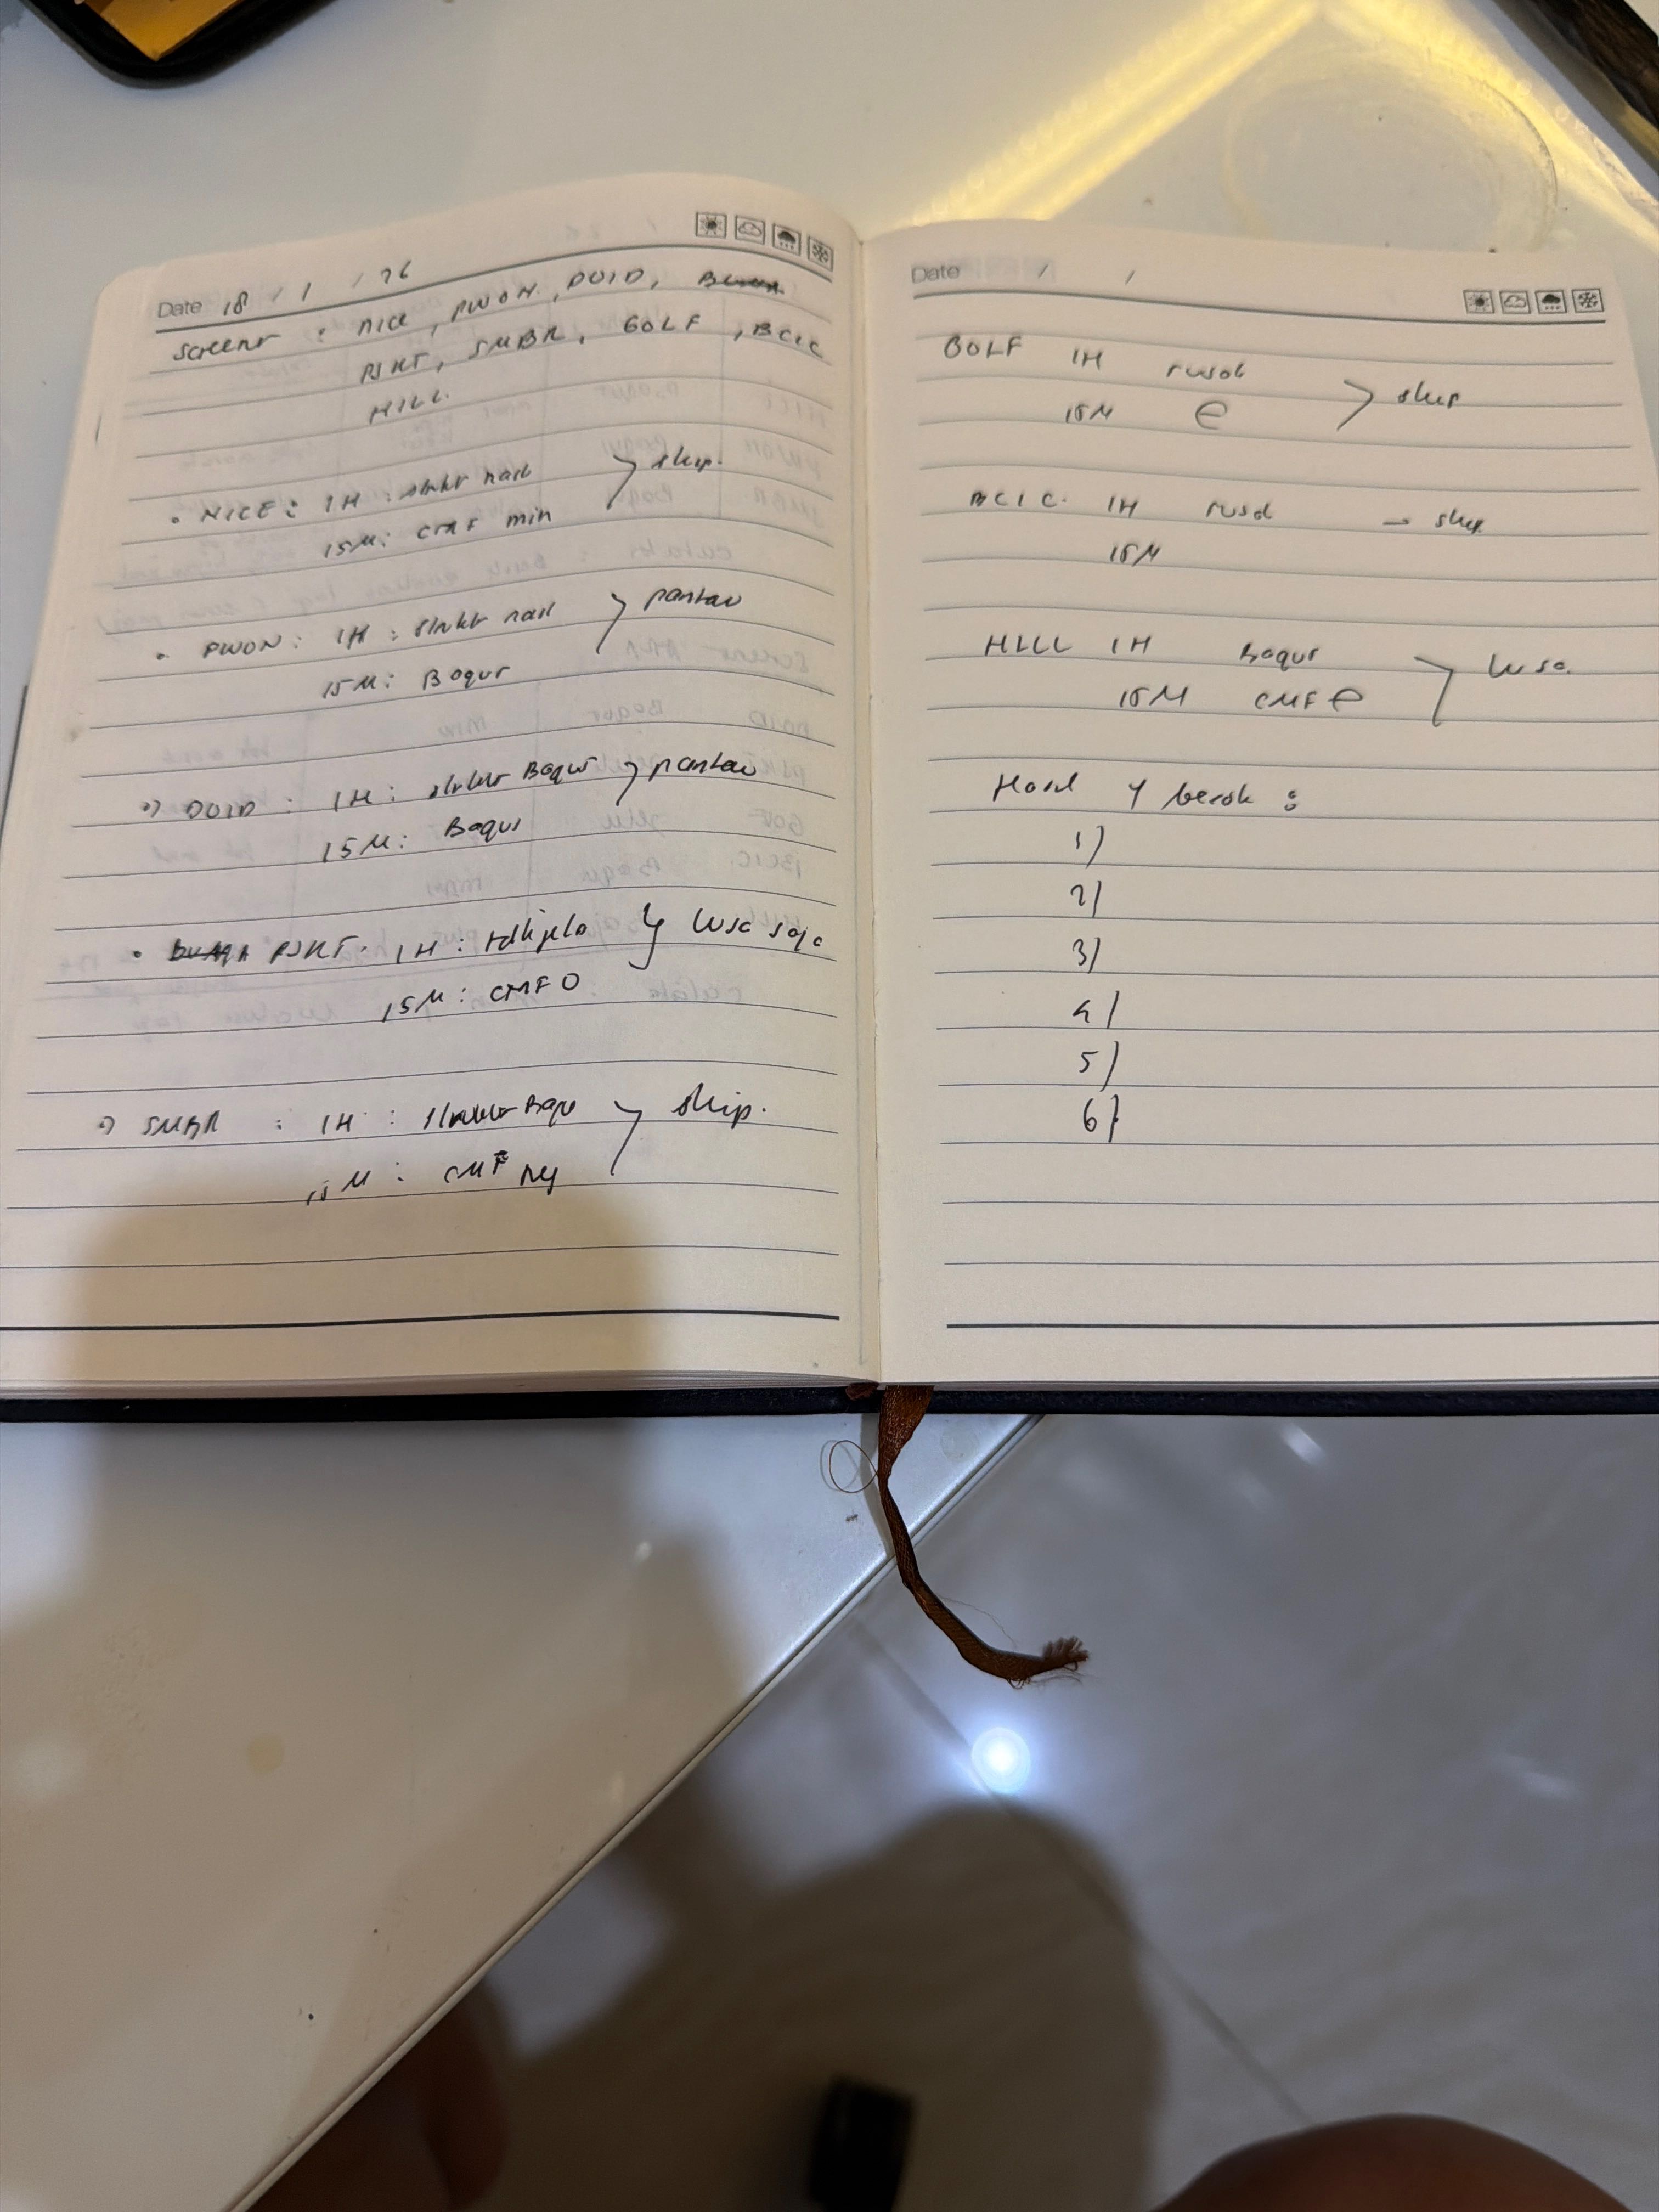 Date 18 / 1 / 26
Screener : NICE, PWON, DOID,
PSKT, SMBR, GOLF, BCIC
HILL.
• NICE : 1H : struktr naik > skip.
15M : CMF min
• PWON : 1H : struktr naik > pantau
15M : Bagus
DOID : 1H : struktur Bagus > pantau
15M : Bagus
• PSKT. 1H : tdk jela > WSC saja
15M : CMF 0
SMBR : 1H : struktur Bagu > skip.
15M : CMF neg
Date / /
GOLF 1H rusak > skip
15M
BCIC. 1H rusak – skip
15M
HILL 1H Bagus > WSC.
15M CMF
Hasil besok :
1)
2)
3)
4)
5)
6)